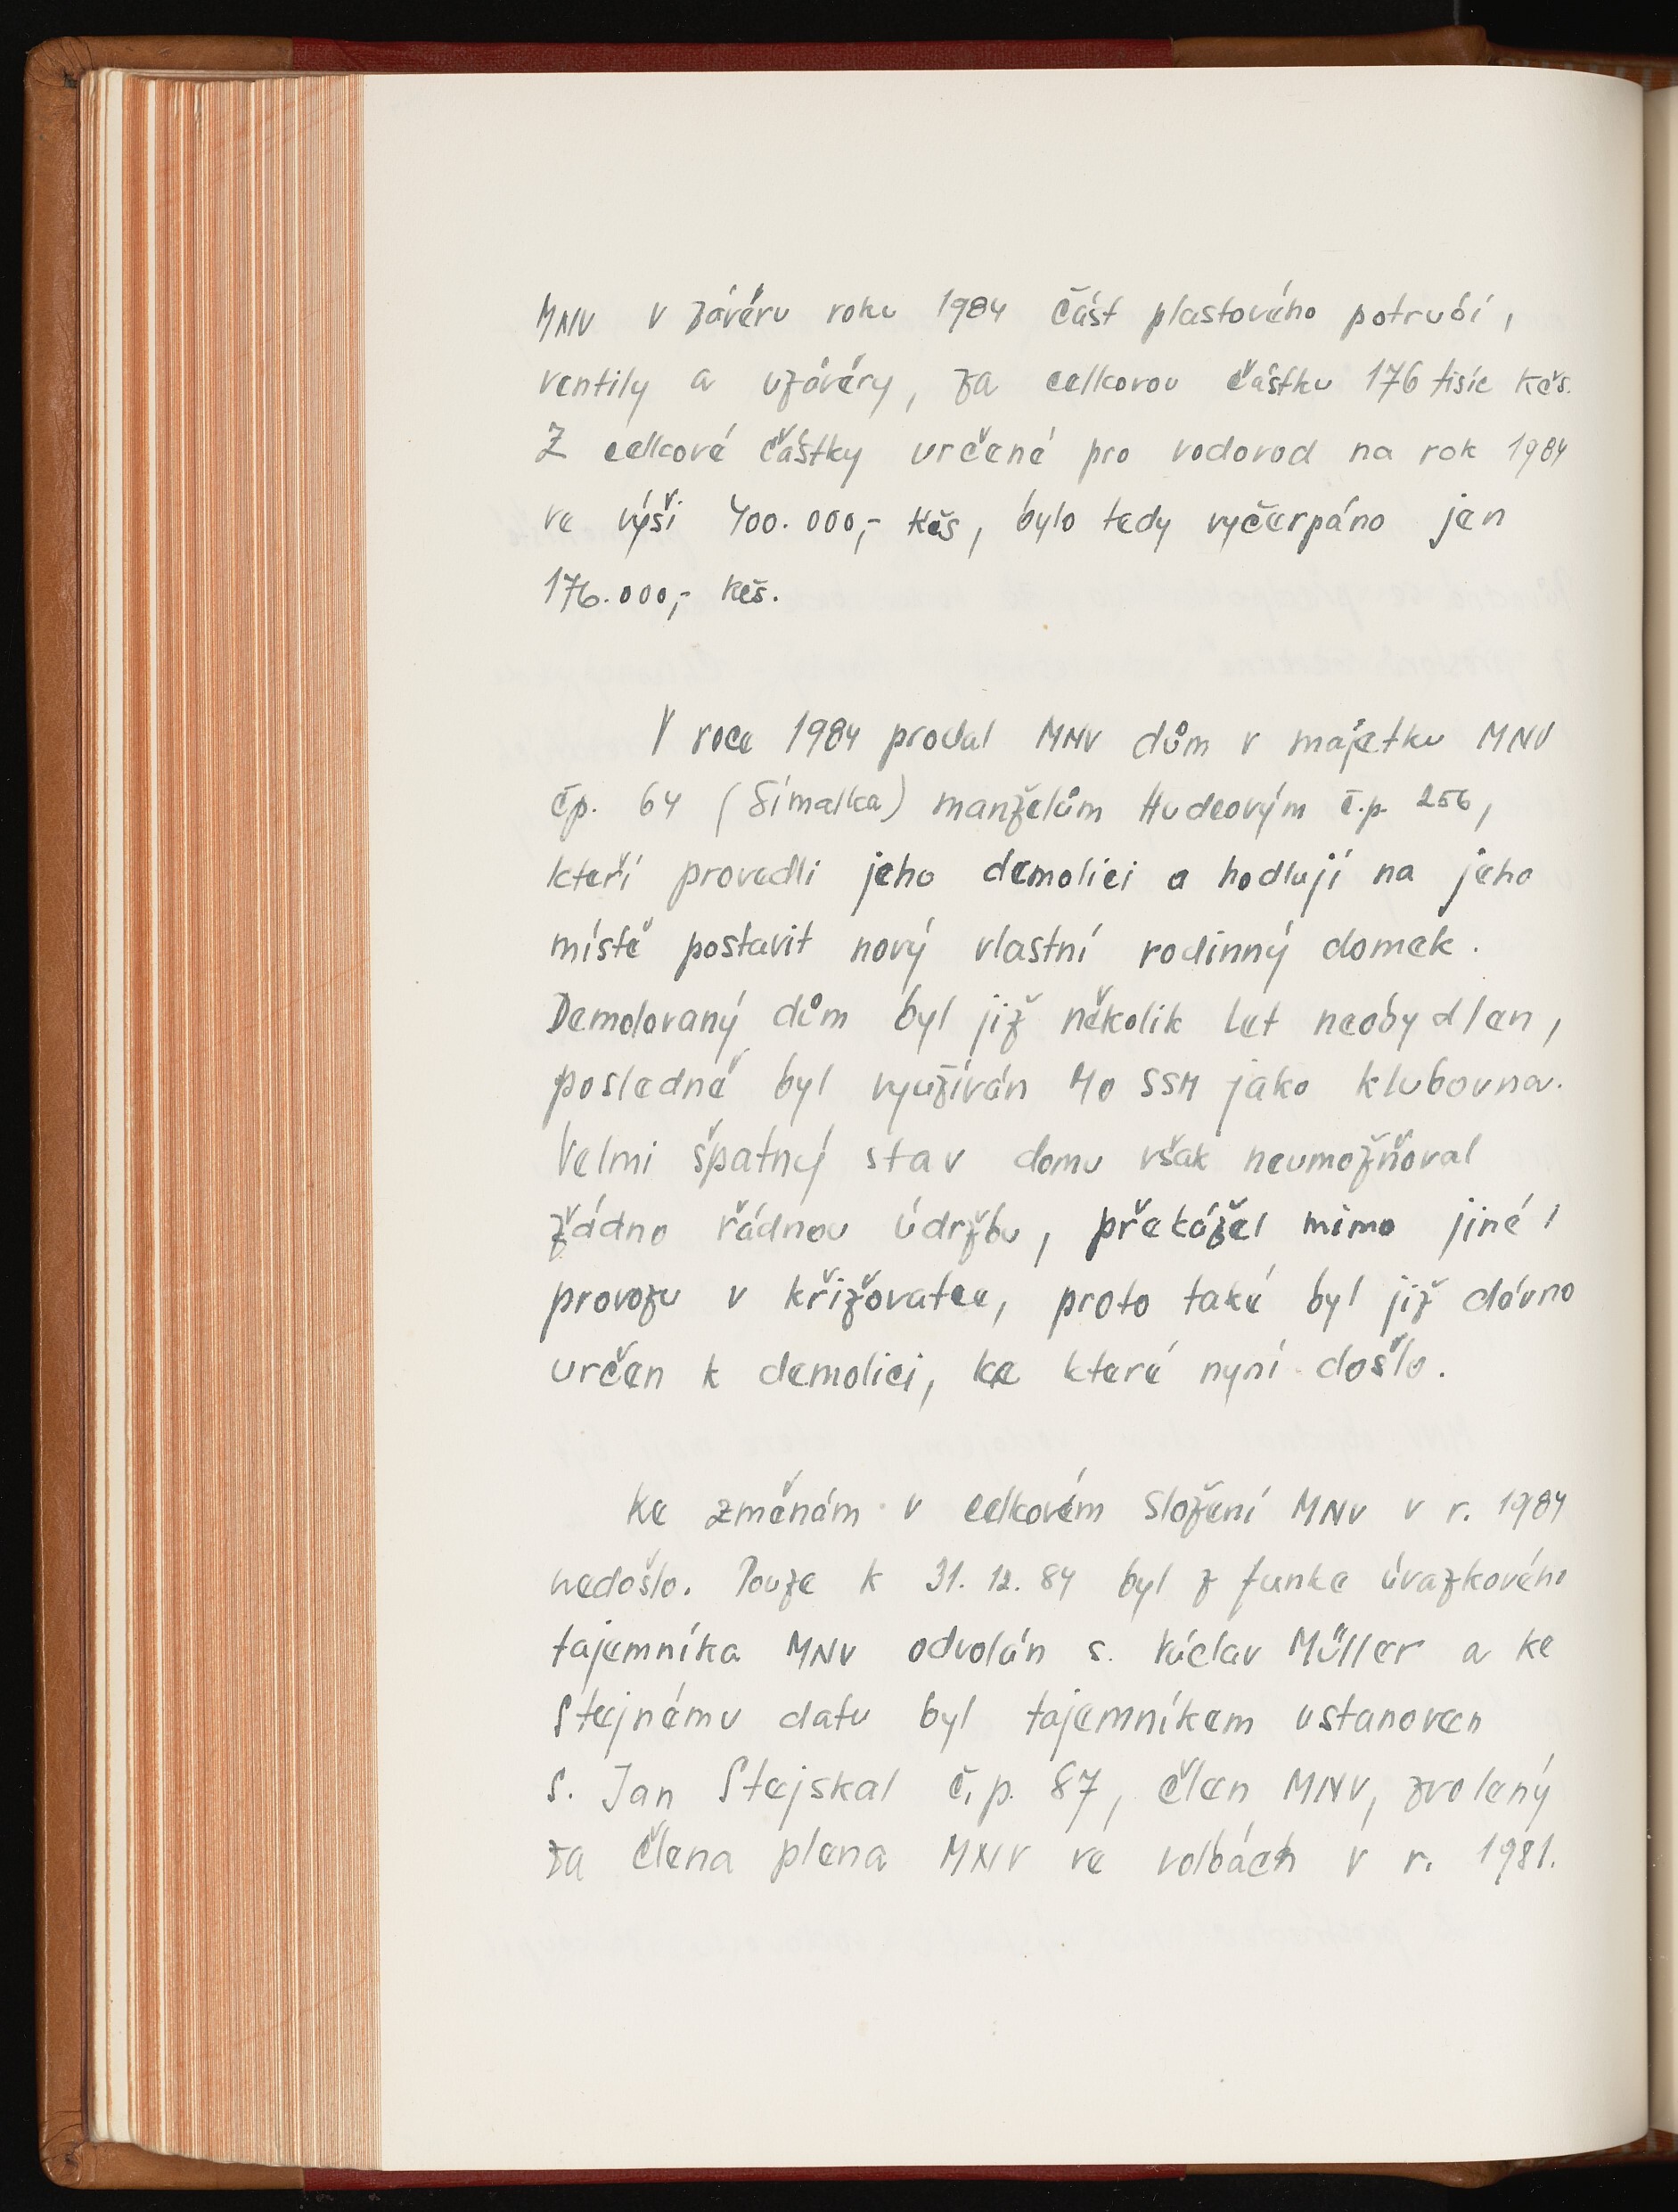 MNV v závěru roku 1984 část plastového potrubí,
ventily a uzávěry, za celkovou částku 176 tisíc Kčs.
Z celkové částky určené pro vodovod na rok 1984
ve výši 400.000,- Kčs, bylo tedy vyčerpáno jen
176.000,- Kčs.
V roce 1984 prodal MNV dům v majetku MNV
čp. 64 (Šimalka) manželům Hudcovým č.p. 256,
kteří provedli jeho demolici a hodlají na jeho
místě postavit nový vlastní rodinný domek.
Demolovaný dům byl již několik let neobydlen,
posledně byl využíván MO SSM jako klubovna.
Velmi špatný stav domu však neumožňoval
žádno řádnou údržbu, překážel mimo jiné i
provozu v křižovatce, proto také byl již dávno
určen k demolici, ke které nyní došlo.
Ke změnám v celkovém složení MNV v r. 1984
nedošlo. Pouze k 31. 12. 84 byl z funkce úvazkového
tajemníka MNV odvolán s. Václav Müller a ke
stejnému datu byl tajemníkem ustanoven
s. Jan Stejskal č.p. 87, člen MNV, zvolený
za člena plena MNV ve volbách v r. 1981.